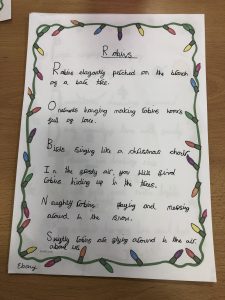 Robins
Robins elegantly perched on the branch
of a bare tree.
Ornaments hanging making robins homes
full of love.
Birds singing like a christmas choir
In the frosty air, you will find
robins hiding up in the trees.
Naughty robins playing and messing
around in the snow.
Sixty robins are flying around in the air
above us.
Ebony